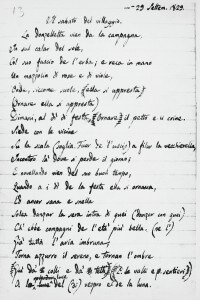 13
29 Settem. 1829.
Il sabato del villaggio.
La donzelletta vien da la campagna,
In sul calar del sole,
Col suo fascio de l'erba; e reca in mano
Un mazzolin di rose e di viole,
Onde, siccome suole, (ella si appresta)
(Ornare ella si appresta)
Dimani, al dì di festa, il petto e il crine.
Siede con le vicine
Su la scala a filar la vecchierella,
Incontro là dove si perde il giorno;
E novellando vien del suo buon tempo,
Quando a i dì de la festa ella si ornava,
Ed ancor sana e snella
Solea danzar la sera intra di quei (danzar con quei)
Ch'ebbe compagni de l'età più bella.
Già tutta l'aria imbruna,
Torna azzurro il sereno, e tornan l'ombre
Giù da' colli e da' tetti
la luna.